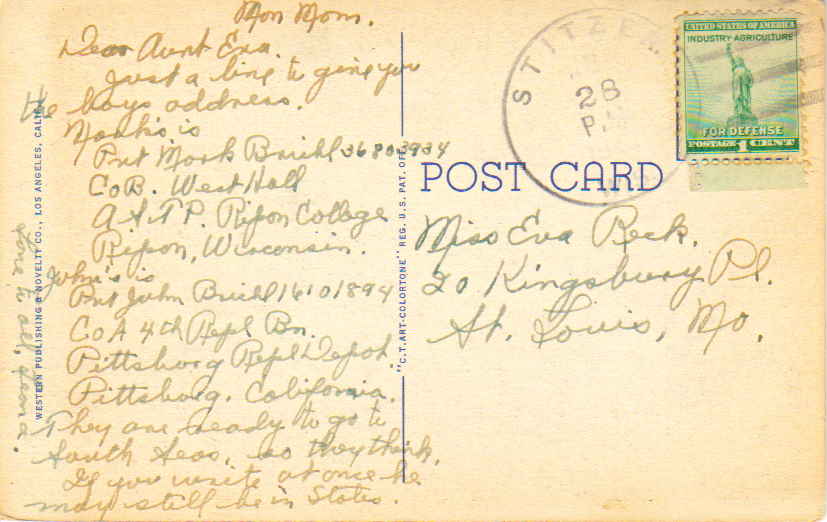 Mon Morn.
Dear Aunt Eva.
Just a line to give you
the boys address.
Mark's is
Pvt Mark Briehl 36803934
Co B. West Hall
A.S.T.P. Ripon College
Ripon, Wisconsin.
John's is
Pvt John Briehl 16101894
Co A 4th Repl Bn.
Pittsburg Repl Depot.
Pittsburg. California.
They are ready to go to
South Seas, so they think.
If you write at once he
may still be in States.
Love to all,
WESTERN PUBLISHING & NOVELTY CO., LOS ANGELES, CALIF.
"C.T. ART-COLORTONE" REG. U.S. PAT. OFF.
POST CARD
STITZE
28
P.
UNITED STATES OF AMERICA
INDUSTRY AGRICULTURE
FOR DEFENSE
POSTAGE 1 CENT
Miss Eva Reck.
20 Kingsbury Pl.
St. Louis, Mo.